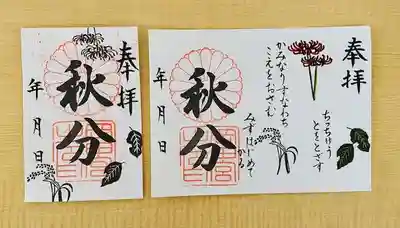 奉拝
秋分
年月日
奉拝
ちっちゅう
とをとざす
かみなりすなわち
こえをおさむ
みずはじめて
かる
秋分
年月日